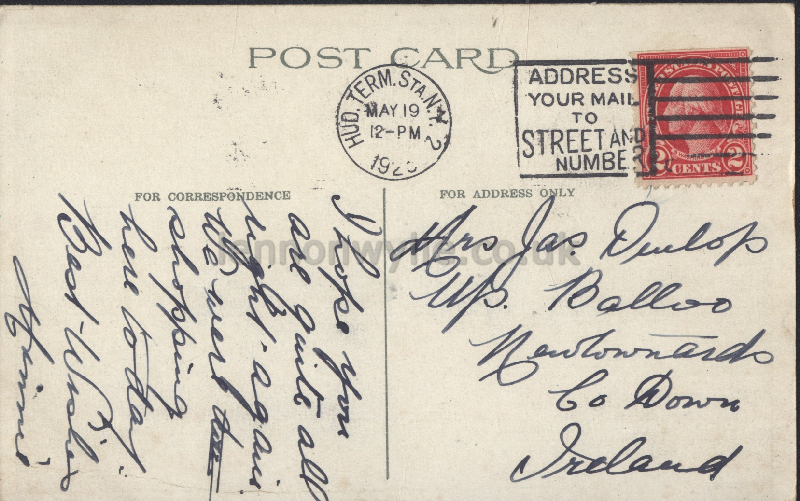 POST CARD
HUD. TERM. STA. N.Y. 2
MAY 19
12-PM
ADDRESS
YOUR MAIL
TO
STREET AND
NUMBER
2 CENTS 2
FOR CORRESPONDENCE
FOR ADDRESS ONLY
I hope you
are quite all
right again.
We were
shopping
here to day
Best Wishes
Mrs Jas Dunlop
Up. Balloo
Newtownards
Co Down
Ireland
lennonwylie.co.uk